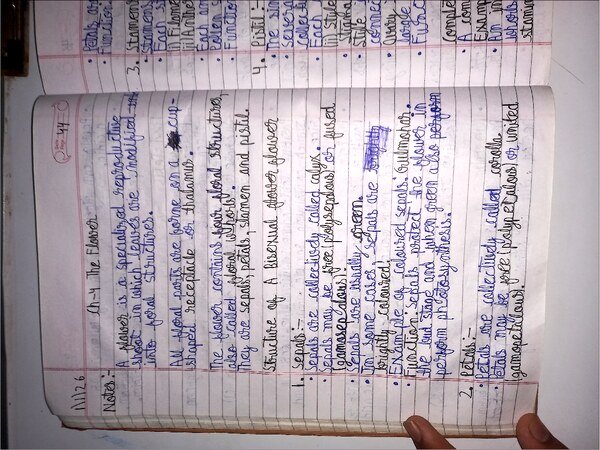 1/1/26
Ch-4 The Flower
44
Notes:-
A flower is a specialized reproductive
shoot in which leaves are modified
into floral structures.
All floral parts are borne on a cup-
shaped receptacle or thalamus.
The flower contains four floral structures,
also called floral whorls.
They are sepals, petals, stamen and pistil.
Structure of A Bisexual flower flower
1. Sepals:-
• Sepals are collectively called calyx.
• Sepals may be free (polysepalous) or fused
(gamosepalous).
• Sepals are usually green.
• In some cases, sepals are
brightly coloured.
• Example of coloured sepals: Gulmohar.
• Function: sepals protect the flower in
the bud stage and when green also perform
perform photosynthesis.
2. Petals:-
• Petals are collectively called corolla.
• Petals may be free (polypetalous) or united
(gamopetalous).
• Petals are
• Function
3. Stamens
• Stamens
• Each s
(i) Filame
(ii) Anthe
• Each an
• Pollen
• Function
4. Pistil:-
• The
several
collecti
• Each
(i) Style
Stigma
Style
connec
Ovary
single
• Func
Complet
• A com
Examp
• Am in
whorls
stamen